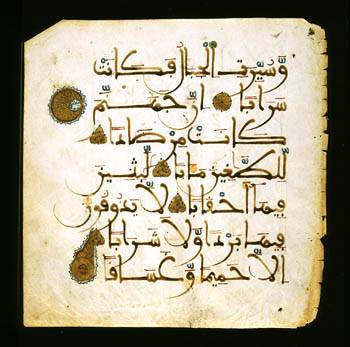 وسيرت الجبال فكانت
سرابا ان جهنم
كانت مرصادا
للطغين مابا لبثين
فيها احقابا لا يذوقون
فيها بردا ولا شرابا
الا حميما وغساقا